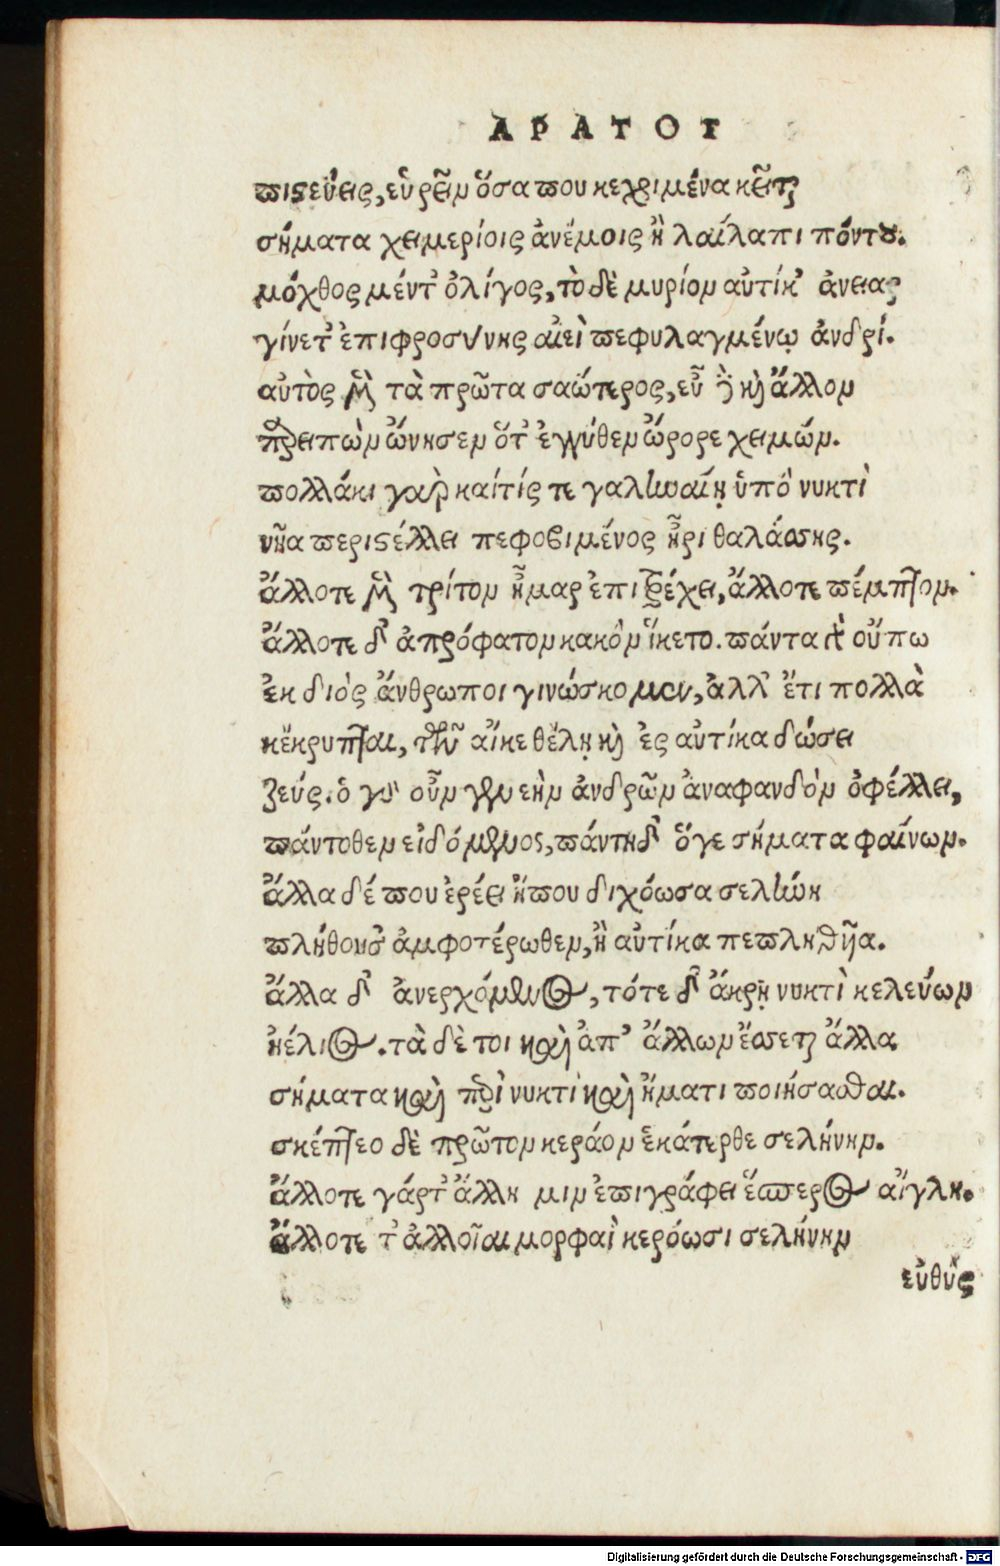 ΑΡΑΤΟΥ
πιστεύεις, εὑρεῖν ὅσα που κεχριμένα κεῖται
σήματα χειμερίοις ἀνέμοις ἢ λαίλαπι πόντου.
μόχθος μέντ' ὀλίγος, τὸ δὲ μυρίον αὐτίκ' ἄνειας
γίνετ' ἐπιφροσύνης αἰεὶ πεφυλαγμένῳ ἀνδρί.
αὐτὸς μὲν τὰ πρῶτα σαώτερος, εὖ δὲ καὶ ἄλλον
παρειπὼν ὤνησεν ὅτ' ἐγγύθεν ὤρορε χειμών.
πολλάκι γὰρ καίτίς τε γαληναίῃ ὑπὸ νυκτὶ
νῆα περιστέλλει πεφοβιμένος ἦρι θαλάσσης.
ἄλλοτε μὲν τρίτον ἦμαρ ἐπιτρέχει, ἄλλοτε πέμπτον.
ἄλλοτε δ' ἀπρόφατον κακὸν ἵκετο. πάντα γὰρ οὔπω
ἐκ διὸς ἄνθρωποι γινώσκομεν, ἀλλ' ἔτι πολλὰ
κέκρυπται, τῶν αἴκε θέλῃ καὶ ἐς αὐτίκα δώσει
ζεύς. ὁ γὰρ οὖν γενεὴν ἀνδρῶν ἀναφανδὸν ὀφέλλει,
πάντοθεν εἰδόμενος, πάντη δ' ὅγε σήματα φαίνων.
ἄλλα δέ που ἐρέει ἤπου διχόωσα σελήνη
πλήθουσ' ἀμφοτέρωθεν, ἢ αὐτίκα πεπληθῆα.
ἄλλα δ' ἀνερχόμενος, τότε δ' ἄκρῃ νυκτὶ κελεύων
ἠέλιος. τὰ δέ τοι καὶ ἀπ' ἄλλων ἔσσεται ἄλλα
σήματα καὶ περὶ νυκτὶ καὶ ἤματι ποιήσασθαι.
σκέπτεο δὲ πρῶτον κεράον ἑκάτερθε σελήνην.
ἄλλοτε γάρτ' ἄλλη μιν ἐπιγράφει ἕσπερος αἴγλη.
ἄλλοτε τ' ἀλλοῖαι μορφαὶ κερόωσι σελήνην
εὐθὺς
Digitalisierung gefördert durch die Deutsche Forschungsgemeinschaft - DFG